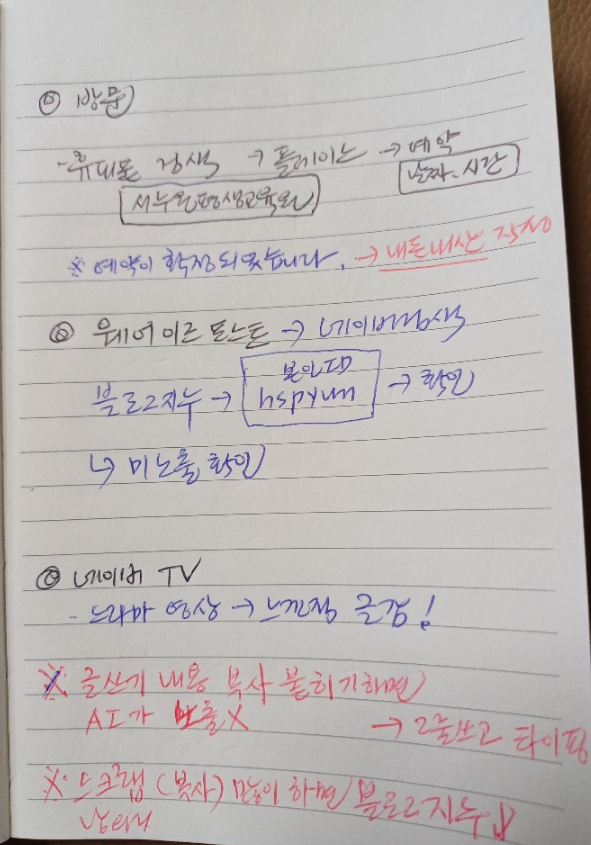 ◎ 방문
- 휴대폰 검색 → 플레이스 → 예약
서누원평생교육원 날짜.시간
※ 예약이 확정되었습니다. → 내돈내산 작성
◎ 웨어이즈포스트 → 네이버검색
블로그지수 → 본인ID → 확인
↳ 미노출 확인
◎ 네이버 TV
- 드라마 영상 →
금검!
※ 글쓰기 내용 복사 붙히기하면
AI가 노출X → 그늘쓰고 타이핑
※. 스크랩 (복사) 많이 하면 블로그지수 ↓